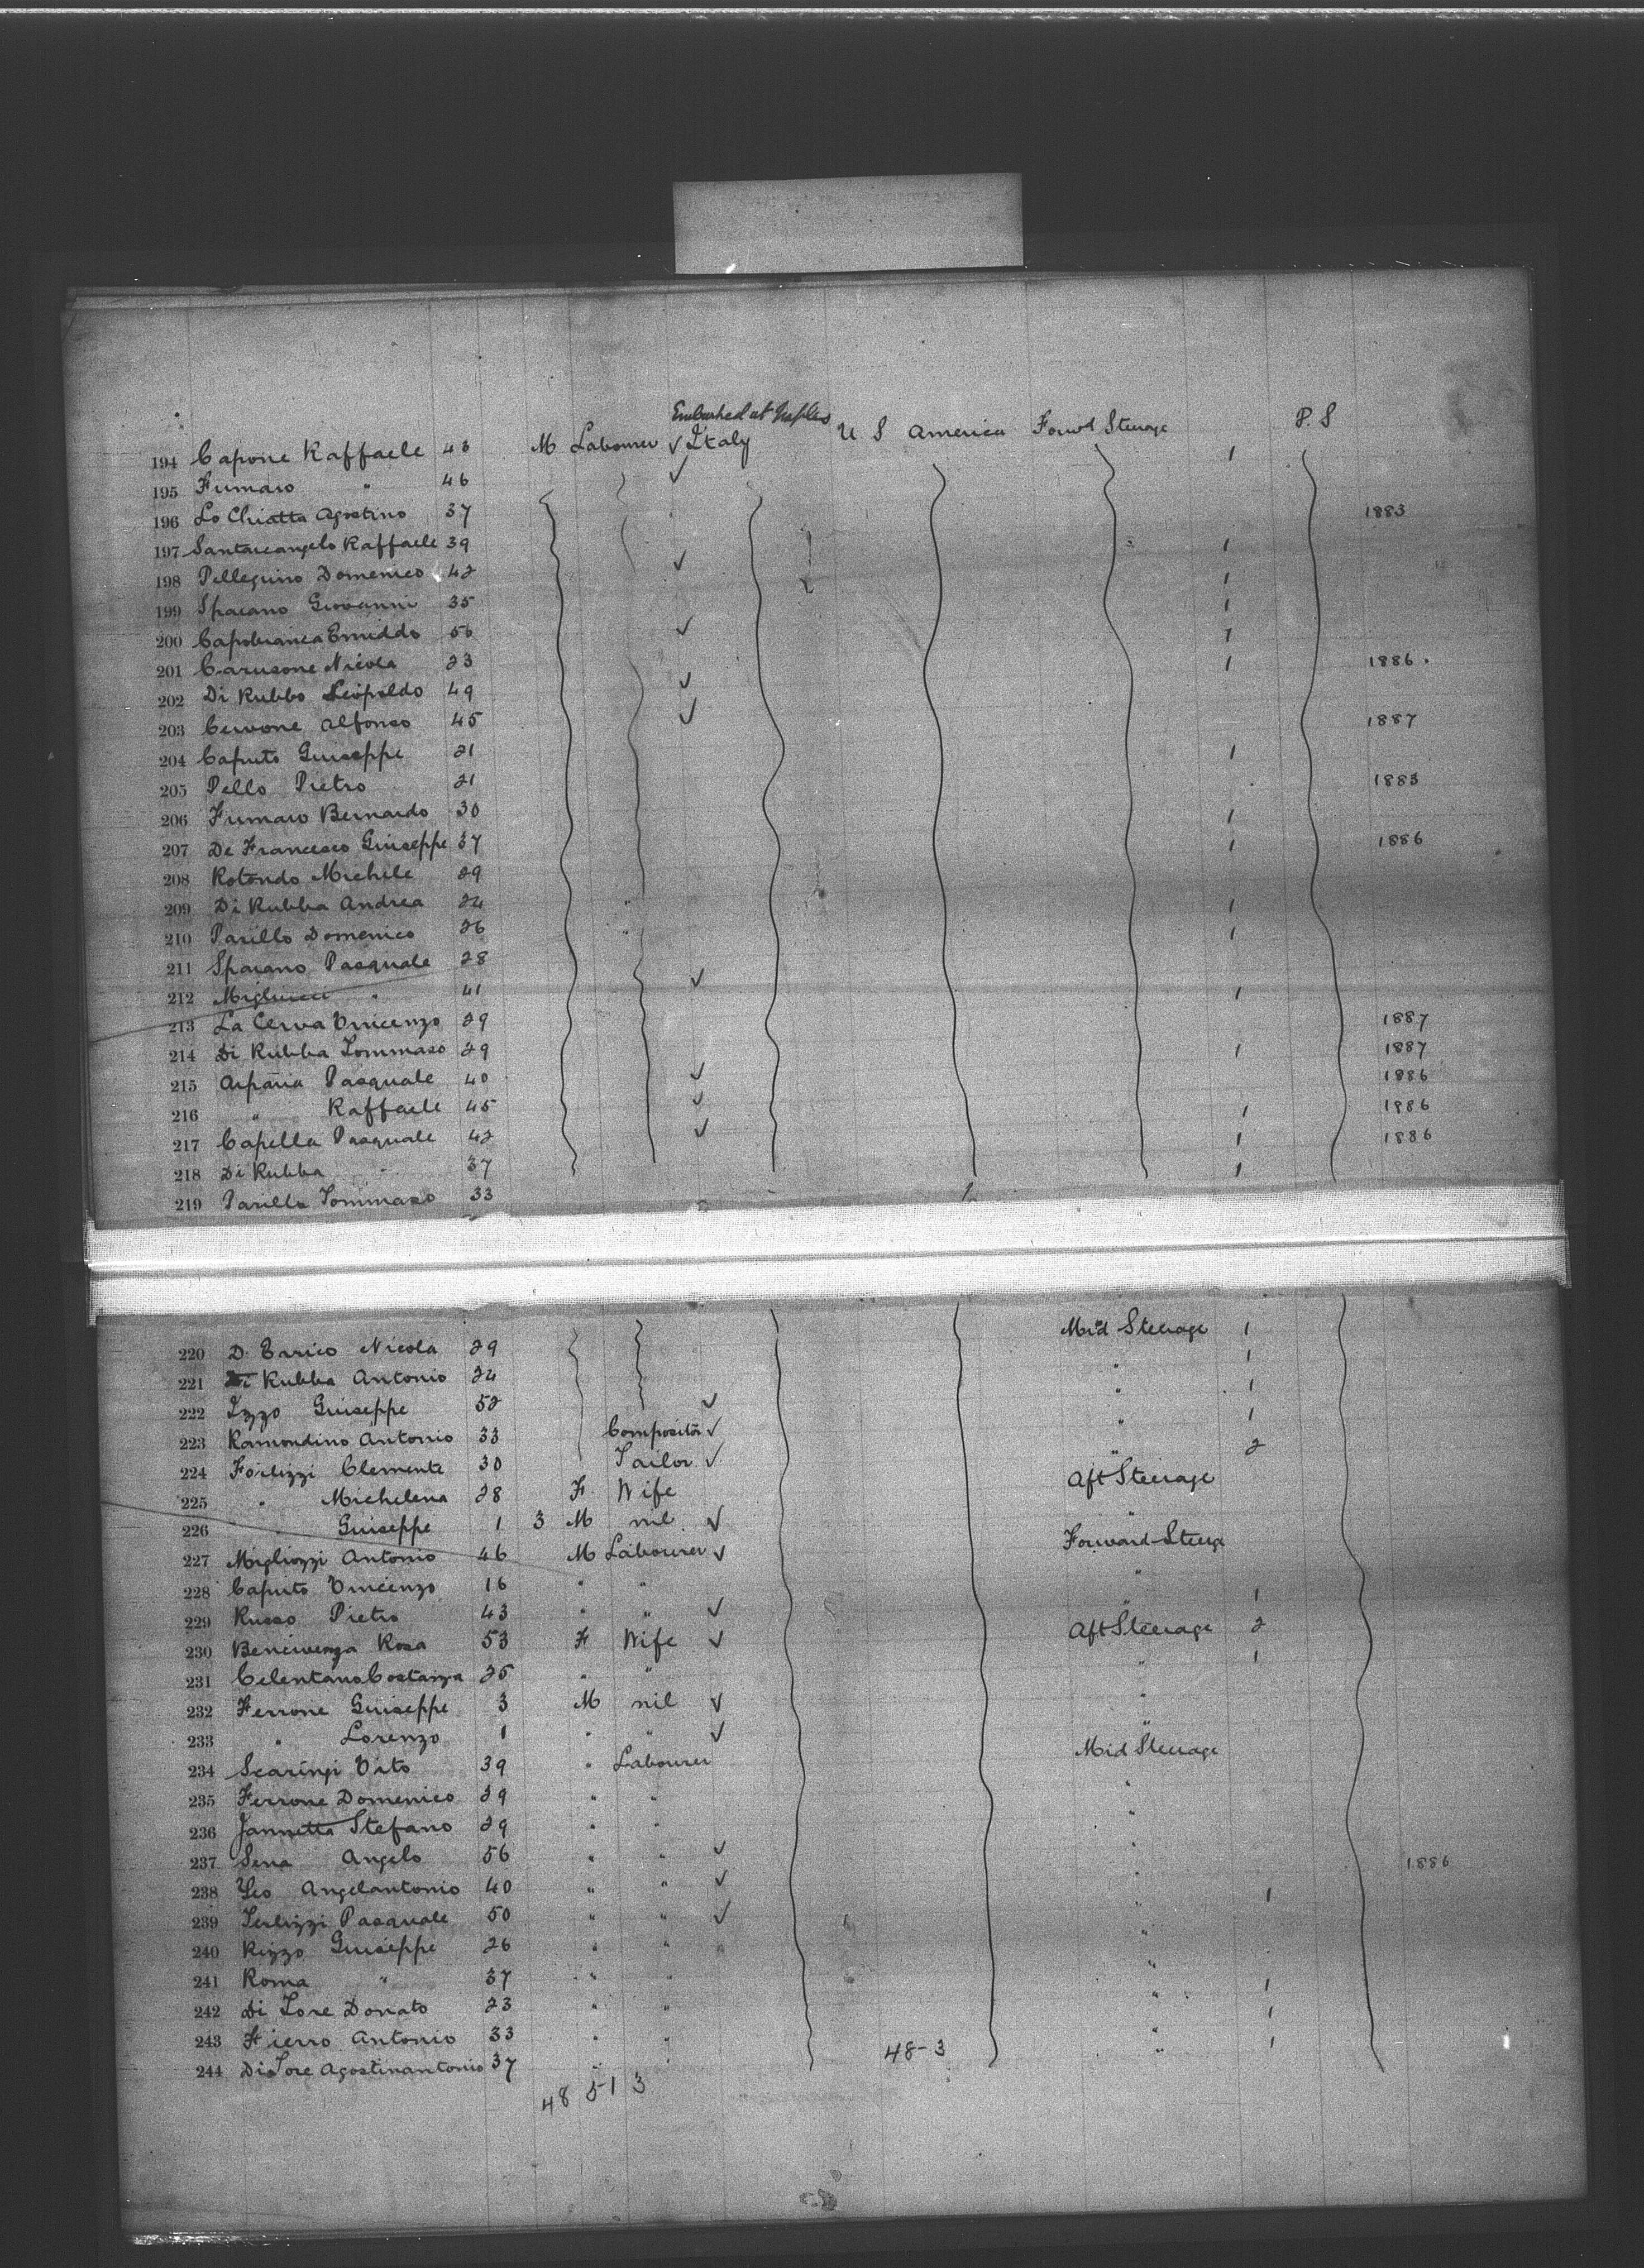 Embarked at Naples
194 Capone Raffaele 43 M Labourer √ Italy U S America Forwd Steerage 1 P. S
195 Fumaro " 46 √
196 Lo Chiatta Agostino 37 1883
197 Santarcangelo Raffaele 39 1
198 Pellegrino Domenico 42 √ 1
199 Spacano Giovanni 35 1
200 Capobianca Emiddo 56 √ 1
201 Carusone Nicola 23 1 1886
202 Di Rubbo Leopoldo 49 √
203 Cervone Alfonso 45 √ 1887
204 Caputo Giuseppe 21 1
205 Pello Pietro 21 1883
206 Fumaro Bernardo 30 1
207 De Francesco Giuseppe 37 1 1886
208 Rotondo Michele 29
209 Di Rubba Andrea 24 1
210 Parillo Domenico 26 1
211 Spacano Pasquale 28
212 Migliucci " 41 √ 1
213 La Cerva Vincenzo 29 1887
214 Di Rubba Tommaso 29 1 1887
215 Arpaia Pasquale 40 √ 1886
216 " Raffaele 45 √ 1 1886
217 Capella Pasquale 42 √ 1 1886
218 Di Rubba " 37 1
219 Parillo Tommaso 33
220 D. Errico Nicola 29 Mid Steerage 1
221 Di Rubba Antonio 24 " 1
222 Izzo Giuseppe 52 √ " 1
223 Ramondino Antonio 33 Compositor √ " 1
224 Forlizzi Clemente 30 Tailor √ " 2
225 " Michelena 28 F Wife Aft Steerage
226 " Giuseppe 1 3 M nil √ "
227 Migliozzi Antonio 46 M Labourer √ Forward Steerge
228 Caputo Vincenzo 16 " " "
229 Russo Pietro 43 " " √ " 1
230 Benevenga Rosa 53 F Wife √ Aft Steerage 2
231 Celentano Costanza 25 " " " 1
232 Ferrone Giuseppe 3 M nil √ "
233 " Lorenzo 1 " " √ "
234 Scaringi Vito 39 " Labourer Mid Steerage
235 Ferrone Domenico 29 " " "
236 Jannetta Stefano 29 " " "
237 Sena Angelo 56 " " √ " 1886
238 Leo Angelantonio 40 " " √ " 1
239 Terlizzi Pasquale 50 " " √ "
240 Rizzo Giuseppe 26 " " "
241 Roma " 37 " " " 1
242 Di Iore Donato 23 " " " 1
243 Fierro Antonio 33 " " " 1
244 Di Iore Agostinantonio 37 " " 48-3 "
48 51 3